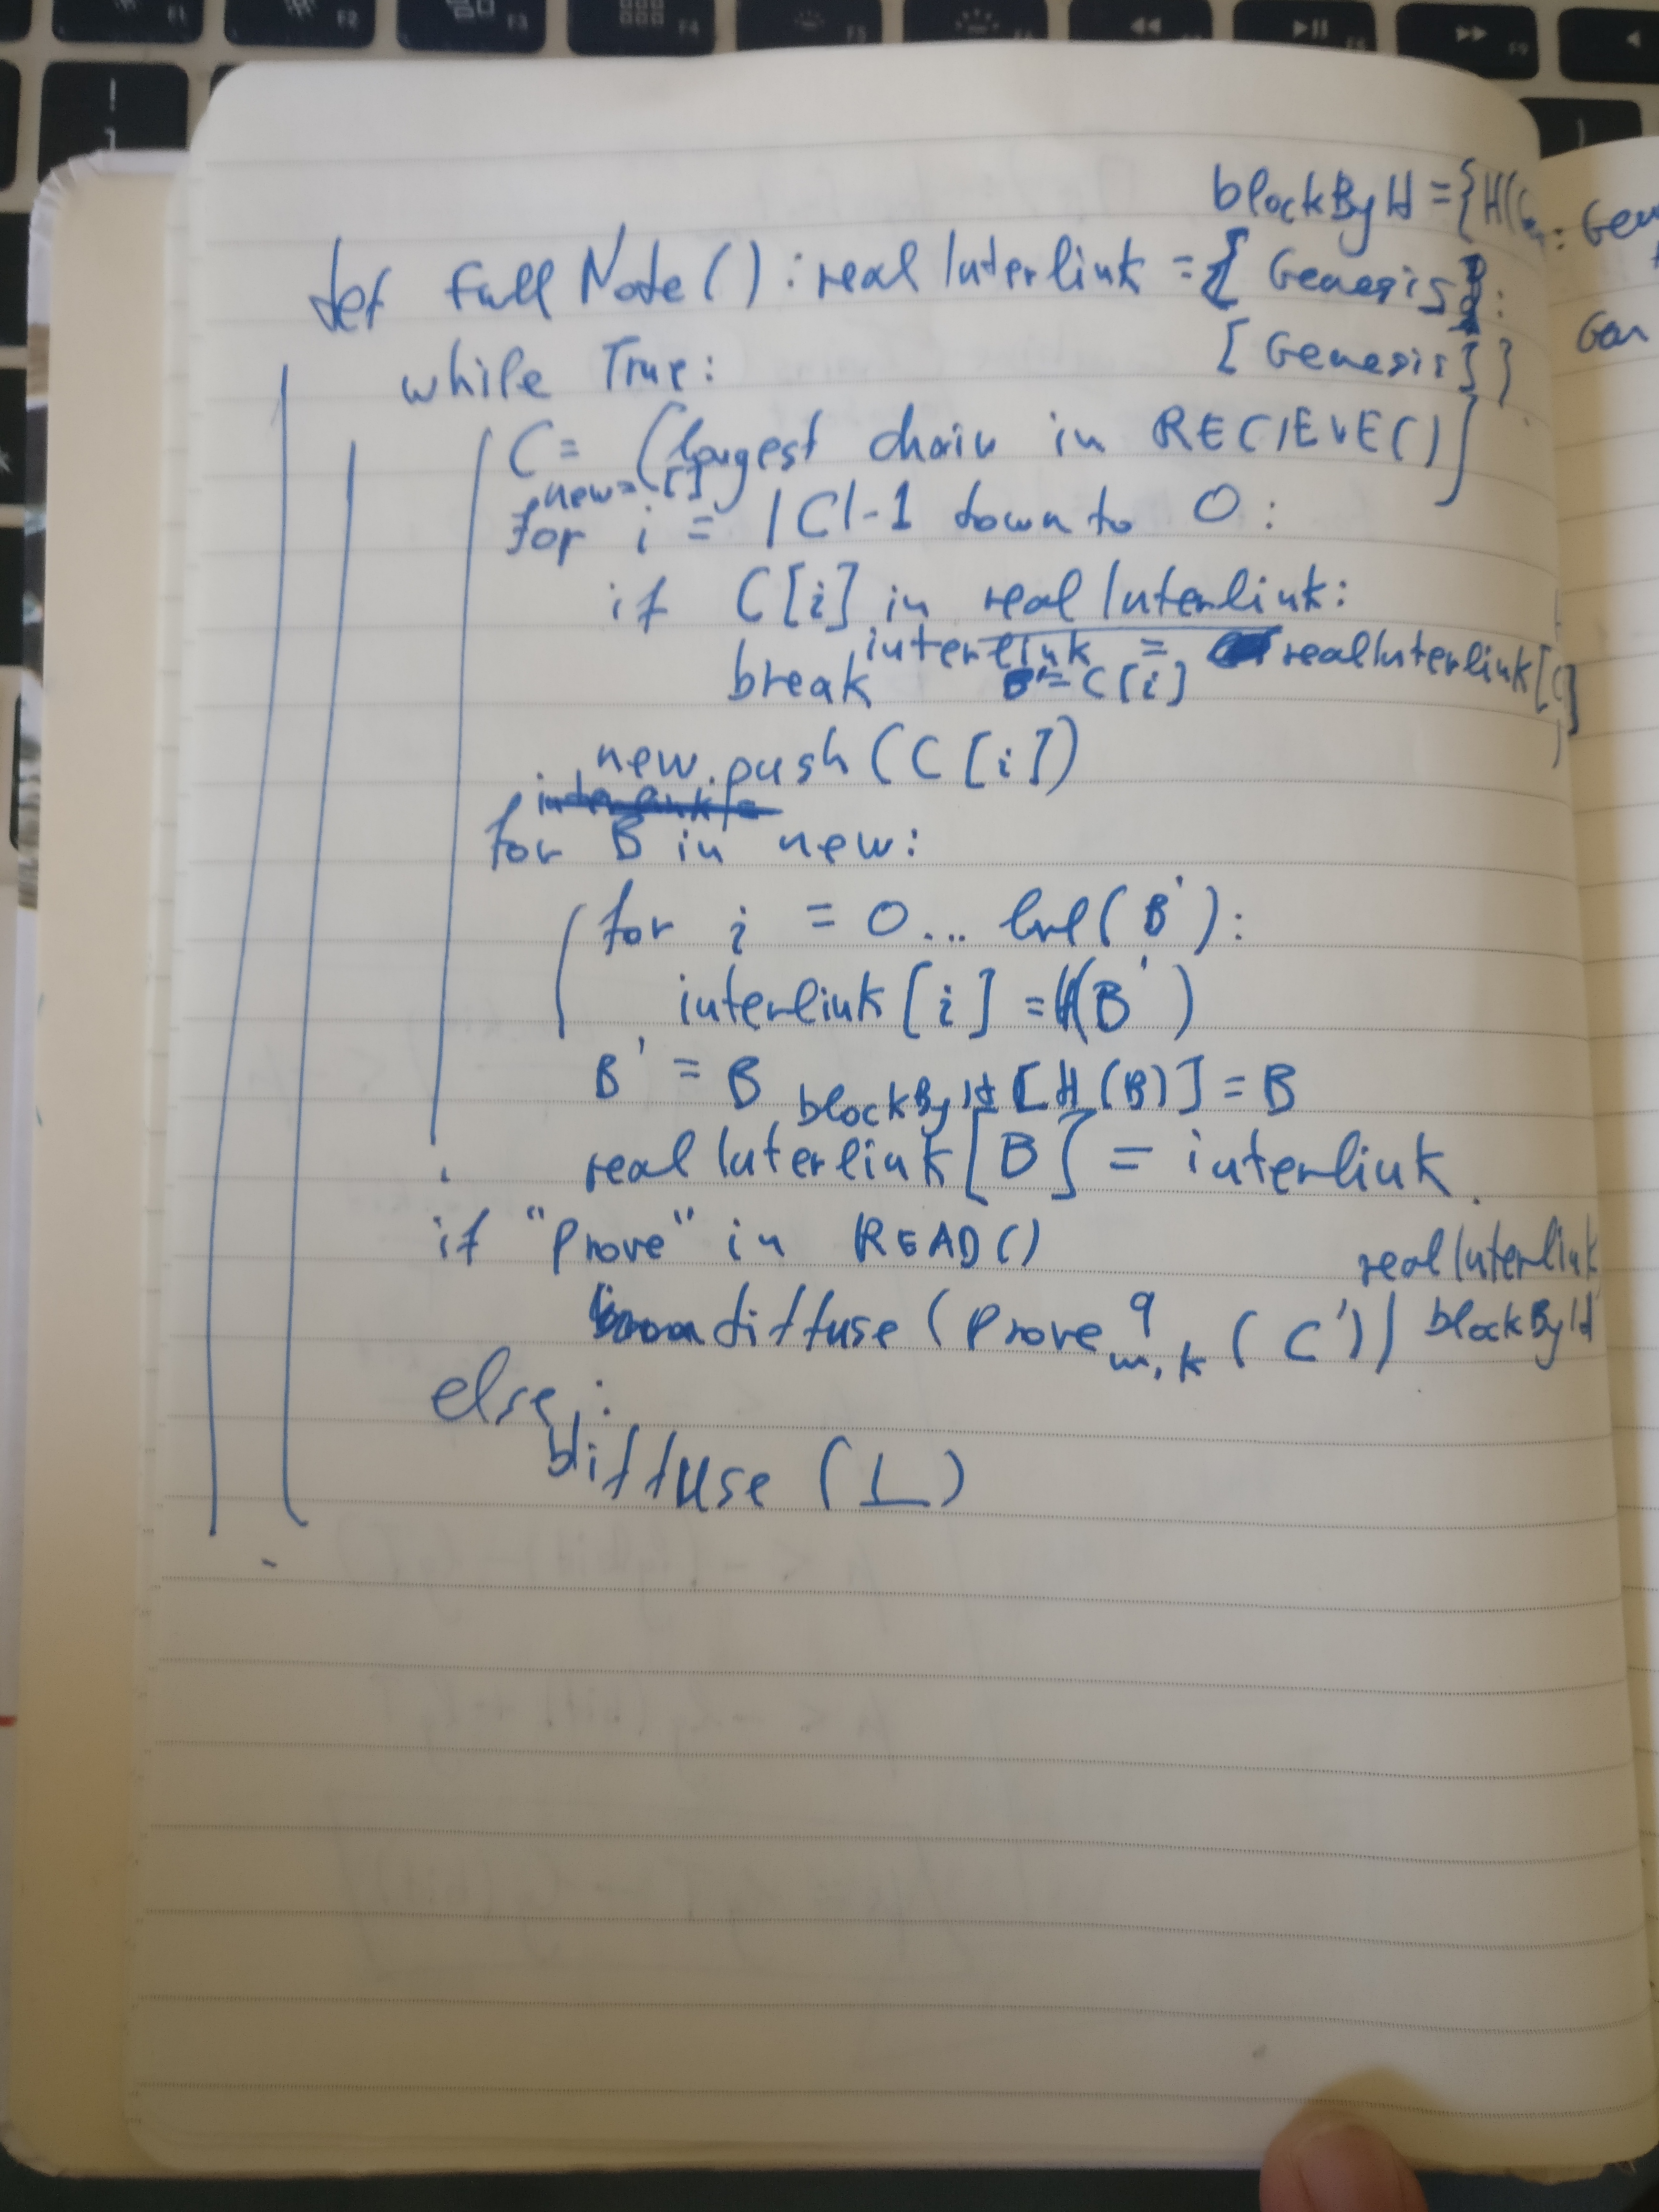 blockByH = {H(G : Gen
def Full Node () : real Interlink = { Genesis :
Gen
[ Genesis ] }
while True :
C = (longest chain in RECIEVE()]
new = []
for i = |C|-1 down to 0 :
if C[i] in real Interlink :
interlink = realInterlink[C]
break B' = C[i]
new.push (C[i])
for B in new :
for i = 0... lvl(B') :
interlink [i] = H(B')
B' = B blockById [H(B)] = B
real Interlink [B] = interlink
if "Prove" in READ()
real Interlink
diffuse (Prove q m,k (C')) blockById
else :
diffuse (⊥)